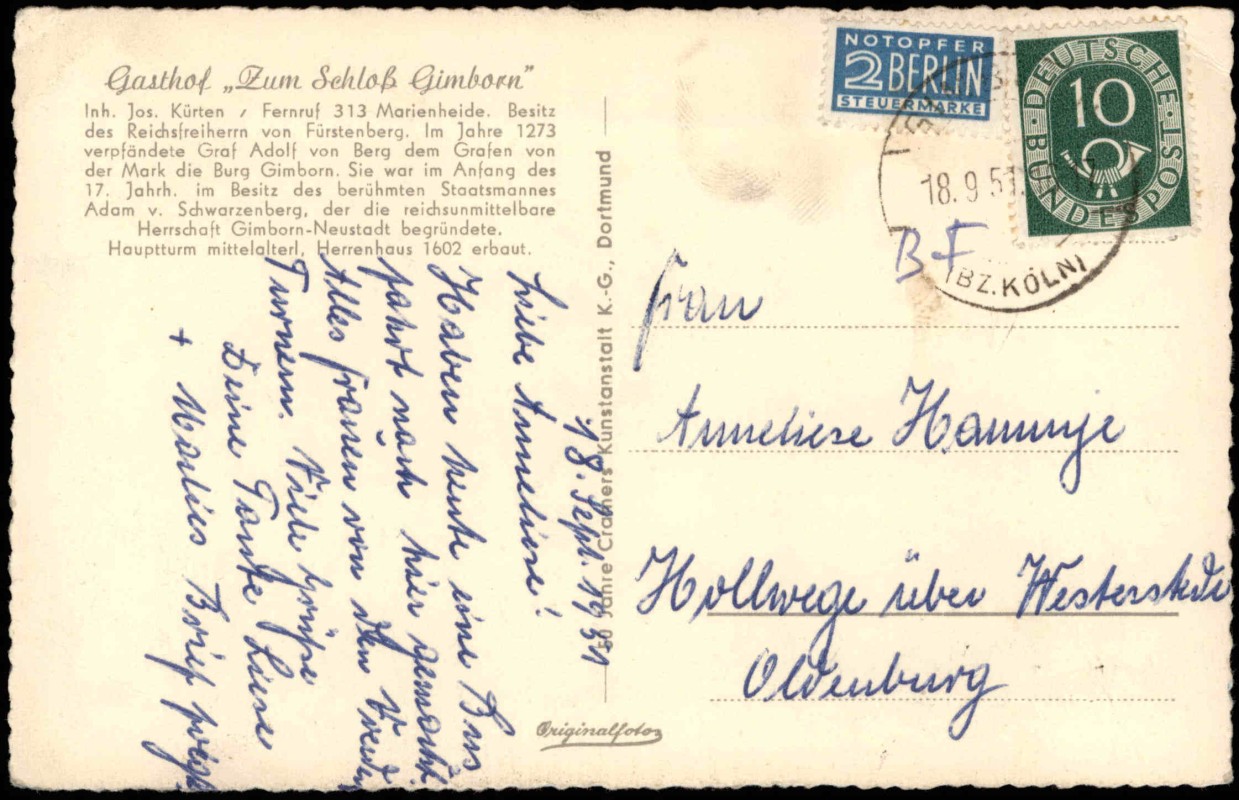 Gasthof „Zum Schloß Gimborn"
Inh. Jos. Kürten / Fernruf 313 Marienheide. Besitz
des Reichsfreiherrn von Fürstenberg. Im Jahre 1273
verpfändete Graf Adolf von Berg dem Grafen von
der Mark die Burg Gimborn. Sie war im Anfang des
17. Jahrh. im Besitz des berühmten Staatsmannes
Adam v. Schwarzenberg, der die reichsunmittelbare
Herrschaft Gimborn-Neustadt begründete.
Hauptturm mittelalterl, Herrenhaus 1602 erbaut.
18. Sept. 1951
Liebe Anneliese!
Haben heute eine Bus
fahrt nach hier gemacht.
Alles Frauen von den
Turnern. Viele Grüße
Deine Tante Liese
+ Marlies Brief folgt
50 Jahre Cramers Kunstanstalt K.-G., Dortmund
Originalfoto
NOTOPFER
2 BERLIN
STEUERMARKE
DEUTSCHE BUNDESPOST
10
18.9.51
(BZ. KÖLN)
BF
Frau
Anneliese Hammje
Hollwege über Westerstede
Oldenburg